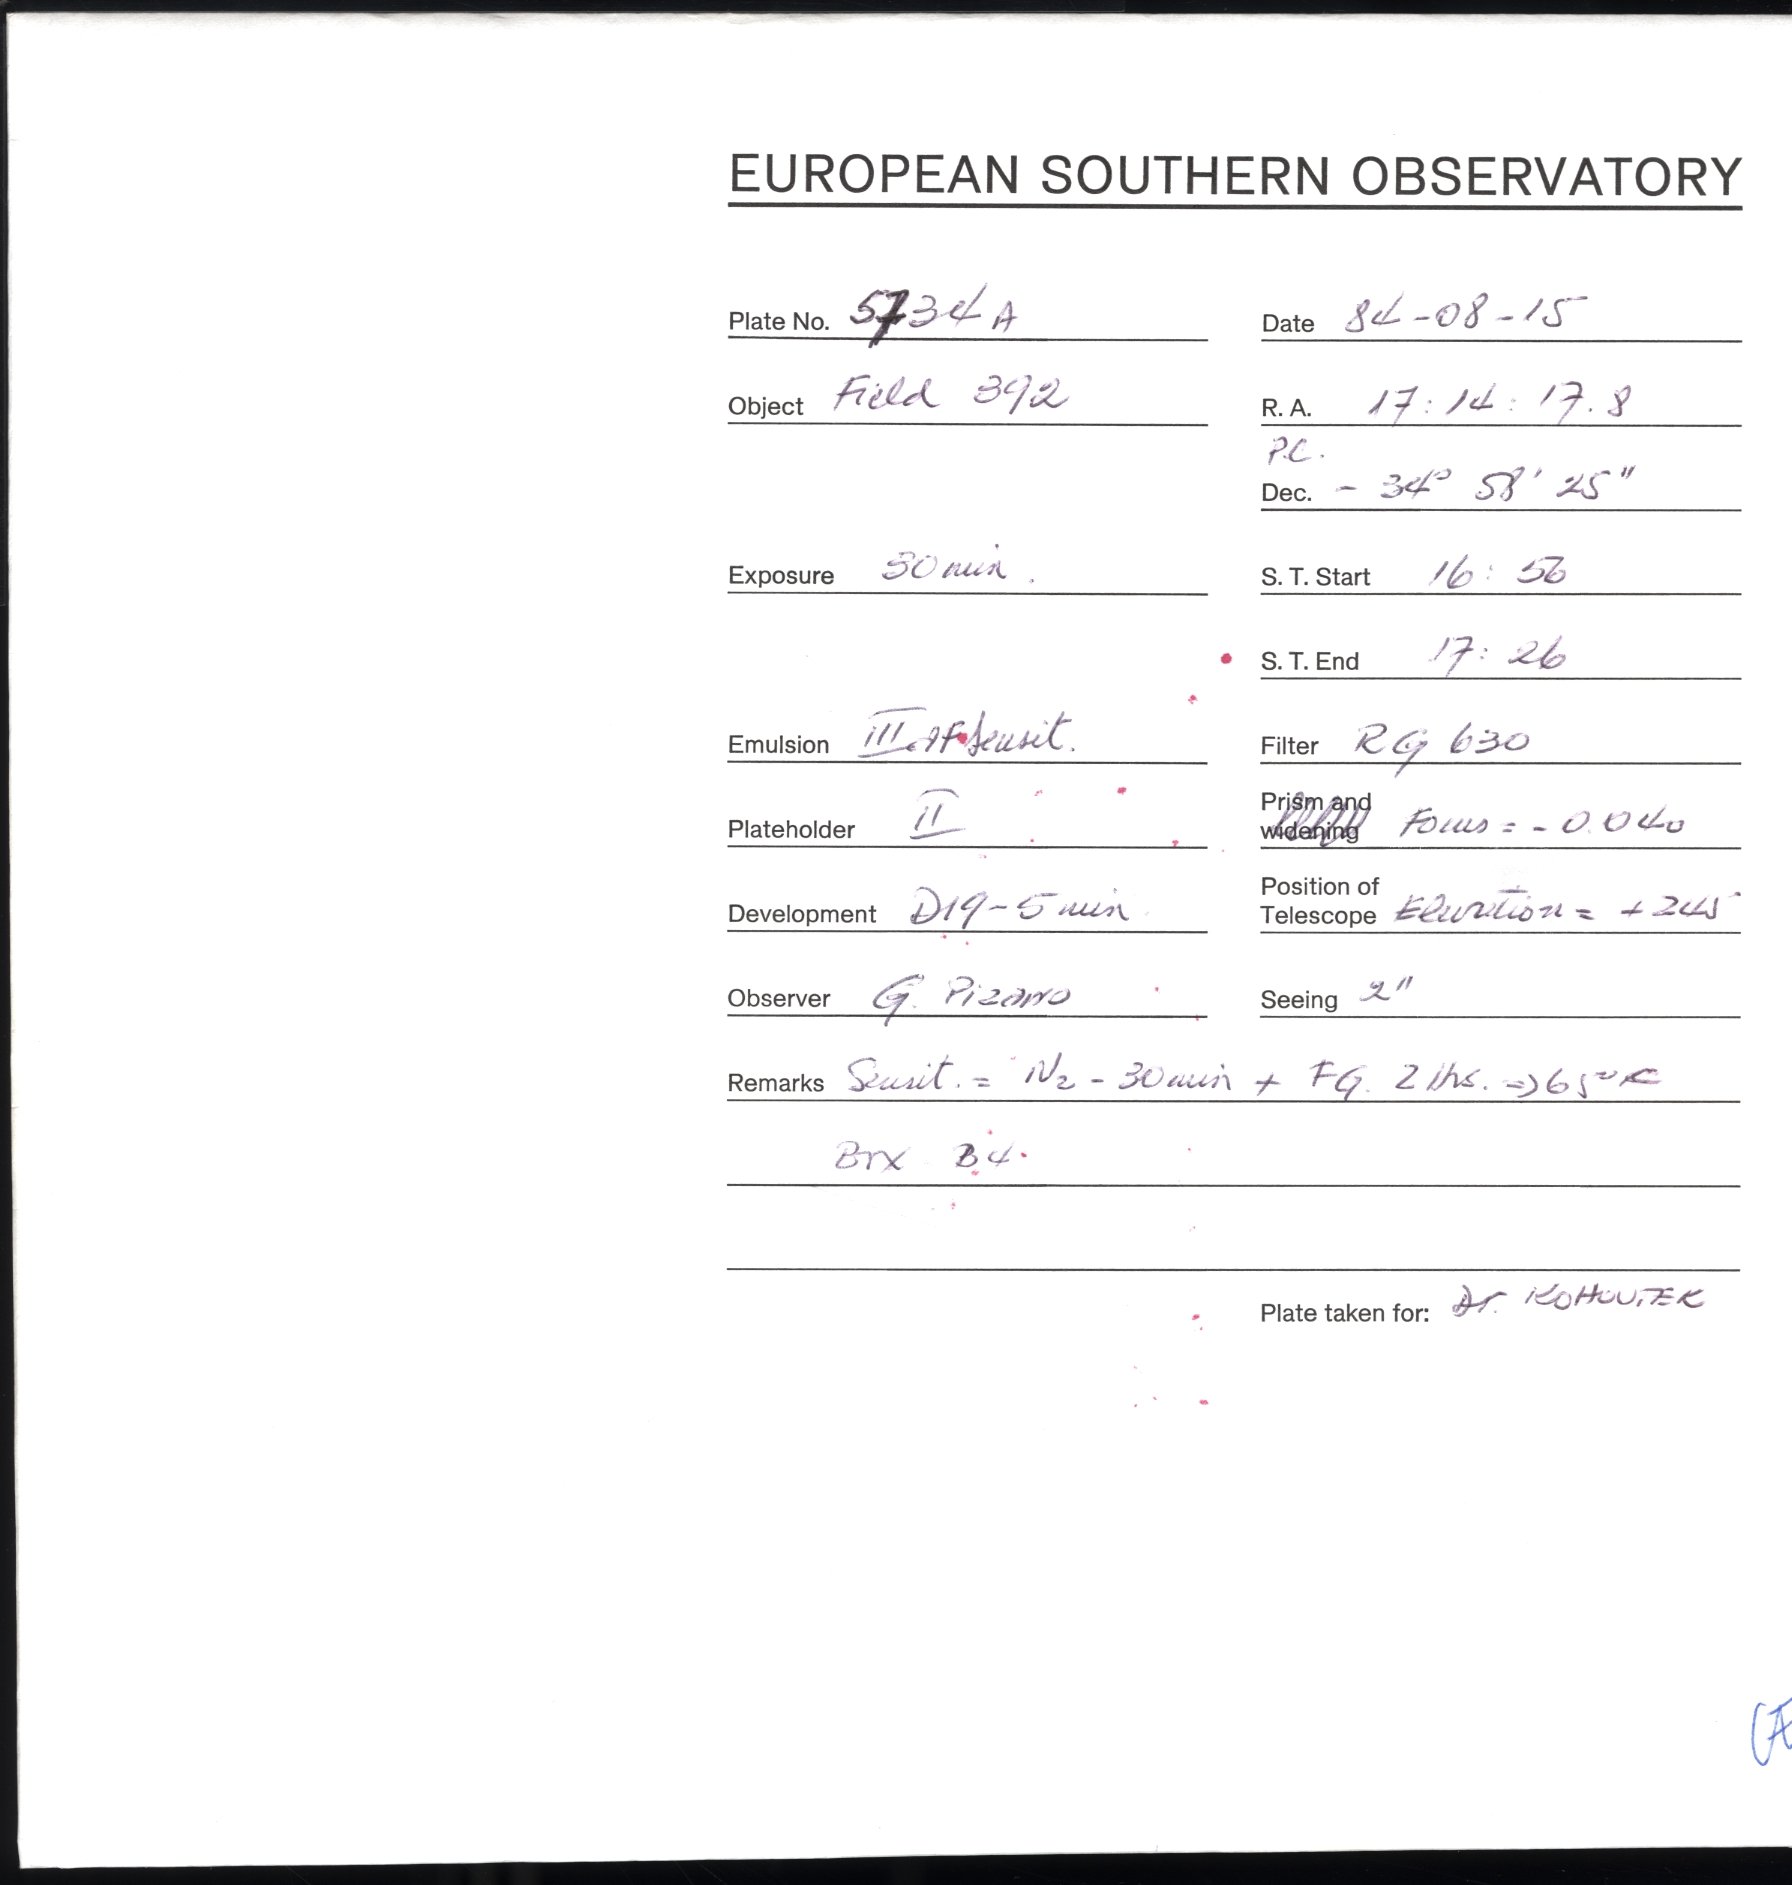 EUROPEAN SOUTHERN OBSERVATORY
Plate No. 5734 A Date 84-08-15
Object Field 392 R. A. 17:14:17.8
P.C.
Dec. - 34° 58' 25"
Exposure 30 min. S. T. Start 16: 56
S. T. End 17: 26
Emulsion III aF sensit. Filter RG 630
Plateholder II Prism and widening Focus = - 0.040
Development D19-5 min Position of Telescope Elevation = + 245
Observer G. Pizarro Seeing 2"
Remarks Sensit. = N2 - 30 min + FG. 2 hs. => 65°C
Box B4
Plate taken for: Dr. KOHOUTEK